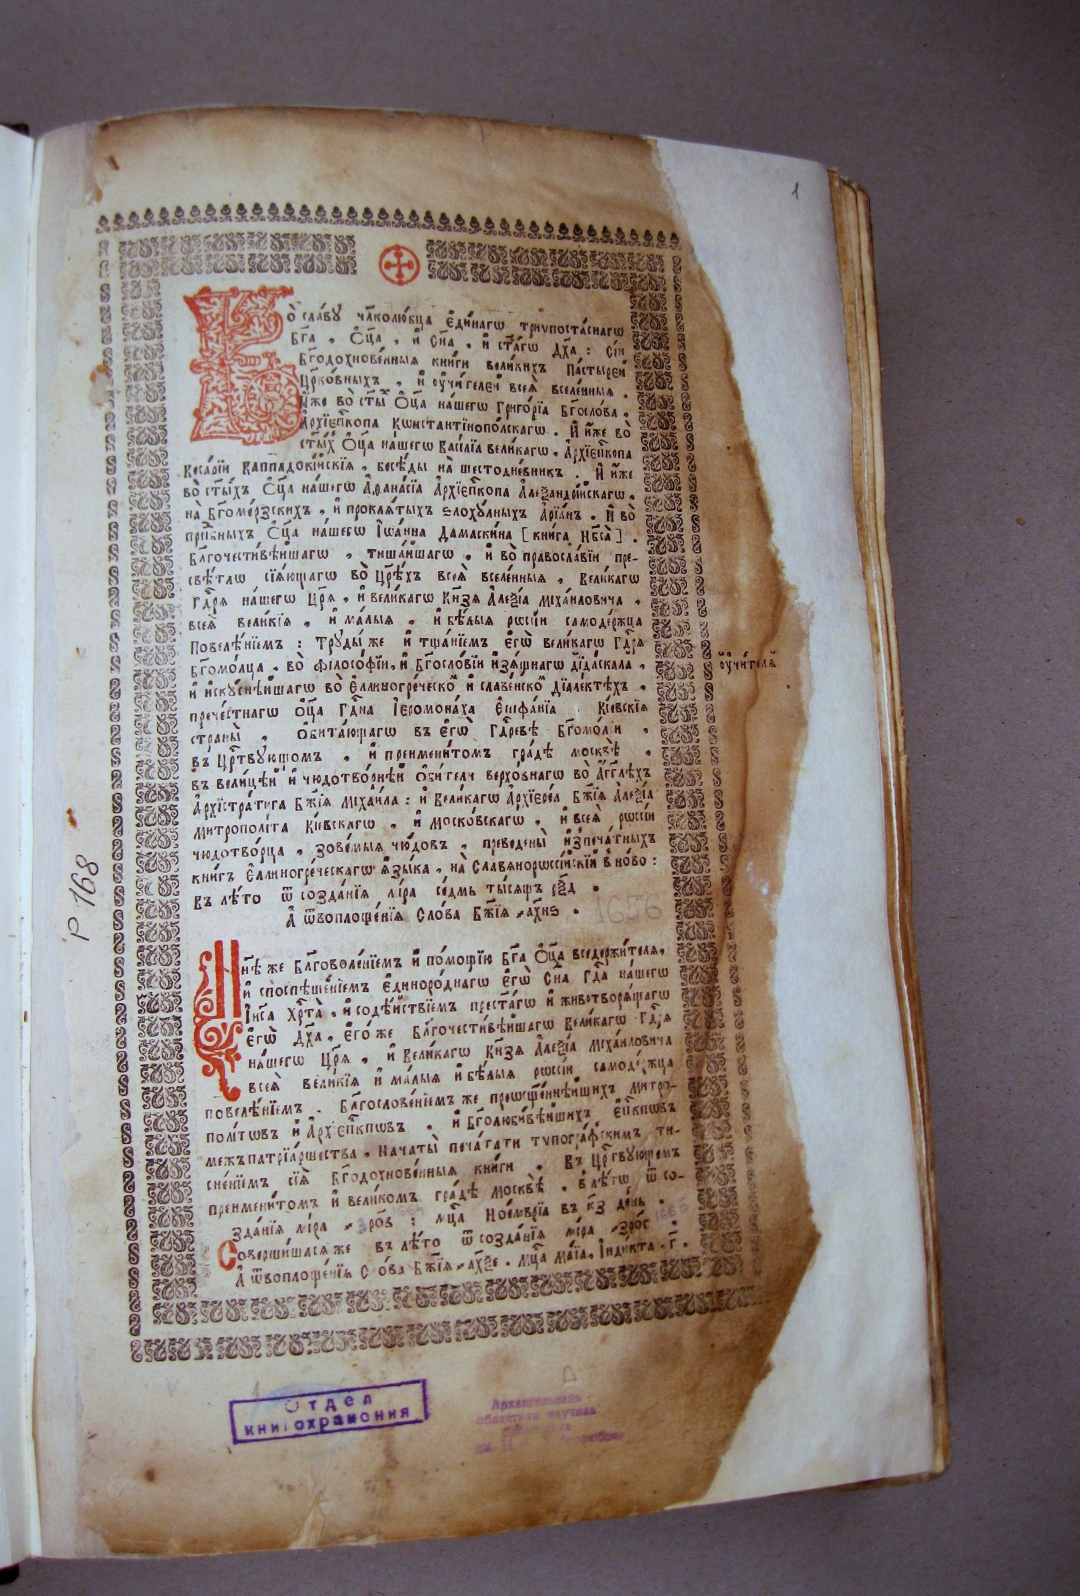 1
Во̀ сла́ву чл҃колю́бца є҆ди́нагѡ трїѵпоста́снагѡ
Бг҃а , Ѻ҆ц҃а , и҆ Сн҃а , и҆ ст҃а́гѡ Дх҃а : Сїѝ
Бг҃одохнове́нныя кни́ги вели́кихъ Па́стырей
Цр҃ко́вныхъ , и҆ ѹ҆чи́телей всея̀ вселе́нныя .
И҆́же во̀ ст҃ы́хъ Ѻ҆ц҃а на́шегѡ Григо́рїа Бг҃осло́ва ,
А҆рхїеп҃копа Кѡнстантїнопо́лскагѡ . И҆ и҆́же во̀
ст҃ы́хъ Ѻ҆ц҃а на́шегѡ Васи́лїа вели́кагѡ , А҆рхїеп҃копа
Кесарі́и Каппадокі́йскїя , бесѣ́ды на̀ шестодне́вникъ . И҆ и҆́же
во̀ ст҃ы́хъ Ѻ҆ц҃а на́шегѡ А҆ѳана́сїа А҆рхїеп҃копа А҆леѯандрі́йскагѡ ,
на̀ Бг҃оме́рзскихъ , и҆ прокля́тыхъ ѕлоху́лныхъ А҆рїа́нъ . И҆ во̀
прпⷣбныхъ Ѻ҆ц҃а на́шегѡ І҆ѡа́нна Дамаски́на [ кни́га Нб҃са̀ ] .
Бл҃гочести́вѣйшагѡ , тиша́йшагѡ , и҆ во̀ правосла́вїи пре-
свѣ́тлѡ сїя́ющагѡ во̀ Цр҃ѣ́хъ всея̀ вселе́нныя , Вели́кагѡ
Гдⷭ҇ря на́шегѡ Цр҃я̀ , и҆ вели́кагѡ Кн҃зя А҆леѯі́а Мїха́иловича ,
всея̀ вели́кїя , и҆ ма́лыя , и҆ бѣ́лыя рѡссі́и самоде́ржца
Повелѣ́нїемъ : Труды́ же и҆ тща́нїемъ є҆гѡ̀ вели́кагѡ Гдⷭ҇ря
Бг҃омо́лца , во̀ фїлосо́фїи , и҆ Бг҃осло́вїи и҆зя́щнагѡ дїда́скала , ѹ҆чи́теля
и҆ и҆ску́снѣйшагѡ во̀ Е҆ллиногре́ческоⷨ и҆ славе́нскоⷨ дїале́ктѣхъ ,
пречⷭ҇тнагѡ ѻ҆ц҃а Гдⷭ҇на І҆еромона́ха Е҆пїфа́нїа Кі́евскїя
страны̀ , ѻ҆бита́ющагѡ въ є҆гѡ̀ Гдⷭ҇ревѣ̀ Бг҃омо́лїи ,
въ Цр҃ствующомъ , и҆ преимени́томъ гра́дѣ москвѣ̀ ,
въ вели́цѣй и҆ чюдотво́рнѣй ѻ҆би́тели верхо́внагѡ во̀ А҆́гг҃лѣхъ
А҆рхїстрати́га Бж҃їя Мїхаи́ла : и҆ Вели́кагѡ А҆рхїере́а Бж҃їя А҆леѯі́а
Митрополі́та Кі́евскагѡ , и҆ Моско́вскагѡ , и҆ всея̀ рѡссі́и
чюдотво́рца , зово́мыя чю́довъ , преведены̀ и҆зпеча́тныхъ
кни́гъ Е҆ллиногре́ческагѡ я҆зы́ка , на̀ Славянорѡссі́йскїй в но́во :
въ лѣ́то ѿ созда́нїя мі́ра се́дмь ты́сящъ рѯ҃д .
А҆ ѿвоплоще́нїя Сло́ва Бж҃їя ҂ахн҃ѕ . 1656
Ны́нѣ же Бл҃говоле́нїемъ и҆ по́мощїю Бг҃а Ѻ҆ц҃а вседержи́теля ,
и҆ споспѣше́нїемъ є҆диноро́днагѡ є҆гѡ̀ Сн҃а Гдⷭ҇а на́шегѡ
І҆и҃са Хр҃та̀ , и҆ содѣ́йствїемъ прест҃а́гѡ и҆ животворя́щагѡ
є҆гѡ̀ Дх҃а , Є҆го́ же бл҃гочести́вѣйшагѡ вели́кагѡ Гдⷭ҇ря
на́шегѡ Цр҃я̀ , и҆ Вели́кагѡ Кн҃зя А҆леѯі́а Мїха́иловича
всея̀ вели́кїя и҆ ма́лыя и҆ бѣ́лыя рѡссі́и самоде́ржца
повелѣ́нїемъ . Бл҃гослове́нїемъ же преѡсщ҃е́ннѣйшихъ митро-
полі́тѡвъ и҆ А҆рхїеп҃кпѡвъ , и҆ Бг҃олюби́вѣйшихъ є҆п҃кпѡвъ
межъпатрїа́ршества , Нача́ты печа́тати тѵпогра́фскимъ ти-
сне́нїемъ сїя̀ Бг҃одохнове́нныя кни́ги . Въ Цр҃ствующемъ
преимени́томъ и҆ вели́комъ гра́дѣ Москвѣ̀ , в лѣ́то ѿ со-
зда́нїя мі́ра ҂зро҃в : мцⷭ҇а Ное́мврїа въ к҃з де́нь .
Соверши́шася же въ лѣ́то ѿ созда́нїя мі́ра ҂зро҃г .
А҆ ѿвоплоще́нїя Сло́ва Бж҃їя ҂ахѯ҃е . мцⷭ҇а Ма́їа , І҆нди́кта г҃ .
Р 168
Отдел
книгохранения
Архангельская
областная научная
библиотека